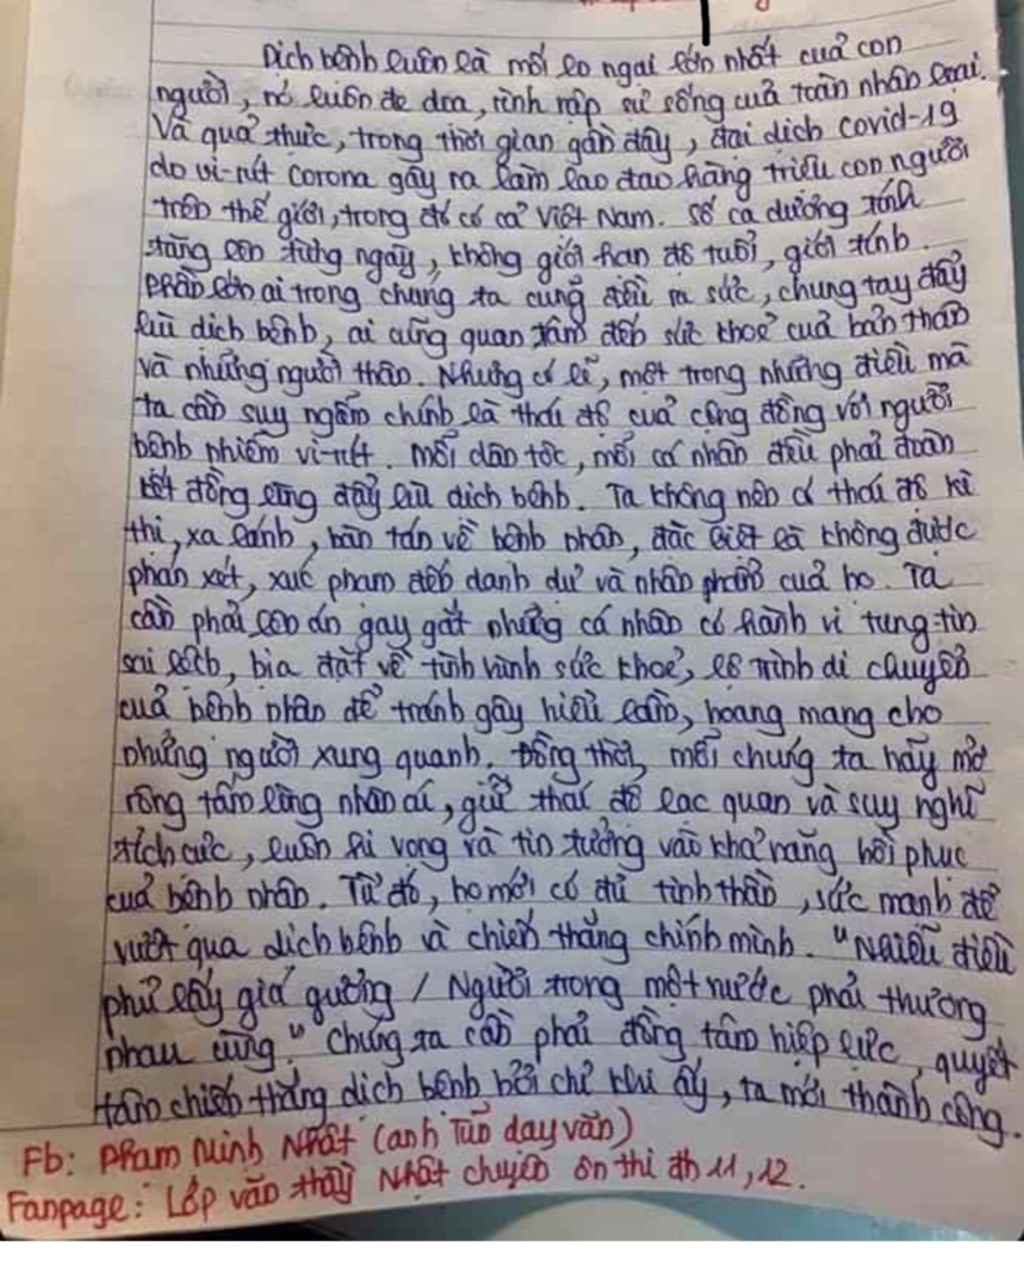 Dịch bệnh luôn là mối lo ngại lớn nhất cuả con
người, nó luôn đe dọa, rình rập sự sống cuả toàn nhân loại.
Và quả thực, trong thời gian gần đây, đại dịch covid-19
do vi-rút Corona gây ra làm lao đao hàng triệu con người
trên thế giới, trong đó có cả Việt Nam. Số ca dương tính
tăng lên từng ngày, không giới hạn độ tuổi, giới tính.
Phần lớn ai trong chúng ta cũng đều ra sức, chung tay đẩy
lùi dịch bệnh, ai cũng quan tâm đến sức khoẻ cuả bản thân
và những người thân. Nhưng có lẽ, một trong những điều mà
ta cần suy ngẫm chính là thái độ cuả cộng đồng với người
bệnh nhiễm vi-rút. Mỗi dân tộc, mỗi cá nhân đều phải đoàn
kết đồng lòng đẩy lùi dịch bệnh. Ta không nên có thái độ kì
thị, xa lánh, bàn tán về bệnh nhân, đặc biệt là không được
phán xét, xúc phạm đến danh dự và nhân phẩm cuả họ. Ta
cần phải lên án gay gắt những cá nhân có hành vi tung tin
sai lệch, bịa đặt về tình hình sức khoẻ, lộ trình di chuyển
cuả bệnh nhân để tránh gây hiểu lầm, hoang mang cho
những người xung quanh. Đồng thời, mỗi chúng ta hãy mở
rộng tấm lòng nhân ái, giữ thái độ lạc quan và suy nghĩ
tích cực, luôn hi vọng và tin tưởng vào khả năng hồi phục
cuả bệnh nhân. Từ đó, họ mới có đủ tinh thần, sức mạnh để
vượt qua dịch bệnh và chiến thắng chính mình. "Nhiễu điều
phủ lấy giá gương / Người trong một nước phải thương
nhau cùng." Chúng ta cần phải đồng tâm hiệp lực, quyết
tâm chiến thắng dịch bệnh bởi chỉ khi ấy, ta mới thành công.
Fb: Phạm Minh Nhật (anh Tũn dạy văn)
Fanpage: Lớp văn thầy Nhật chuyên ôn thi đh 11, 12.